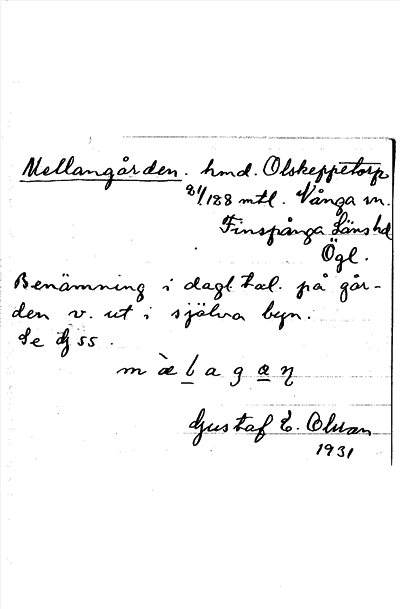 Mellangården. hmd. Olskeppetorp
81/188 mtl. Vånga sn.
Finspånga Länshd
Ögl.
Benämning i dagl. tal. på går-
den v. ut i själva byn.
Se Dj 55.
Gustaf E. Olsson
1931